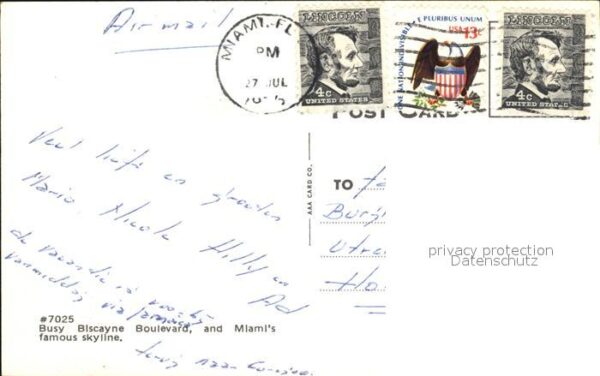 Air mail
MIAMI, FL
PM
27 JUL
LINCOLN
4c
UNITED STATES
E PLURIBUS UNUM
USA 13c
ONE NATION INDIVISIBLE
LINCOLN
4c
UNITED STATES
POST CARD
Veel liefs en groeten
Maria, Nicole Hilly en Ad
de vacantie is voorbij
vanmiddag via
terug naar
AAA CARD CO.
TO
Utre
Ho
privacy protection
Datenschutz
#7025
Busy Biscayne Boulevard, and Miami's
famous skyline.